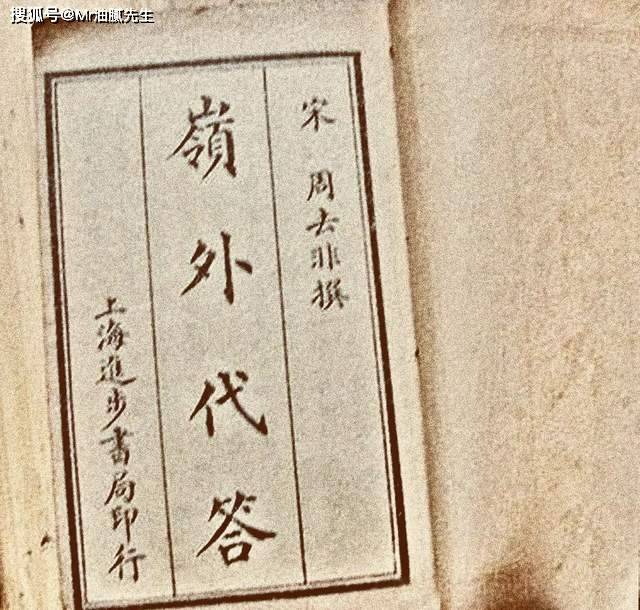 搜狐号@Mr油腻先生
宋 周去非撰
嶺外代答
上海進步書局印行